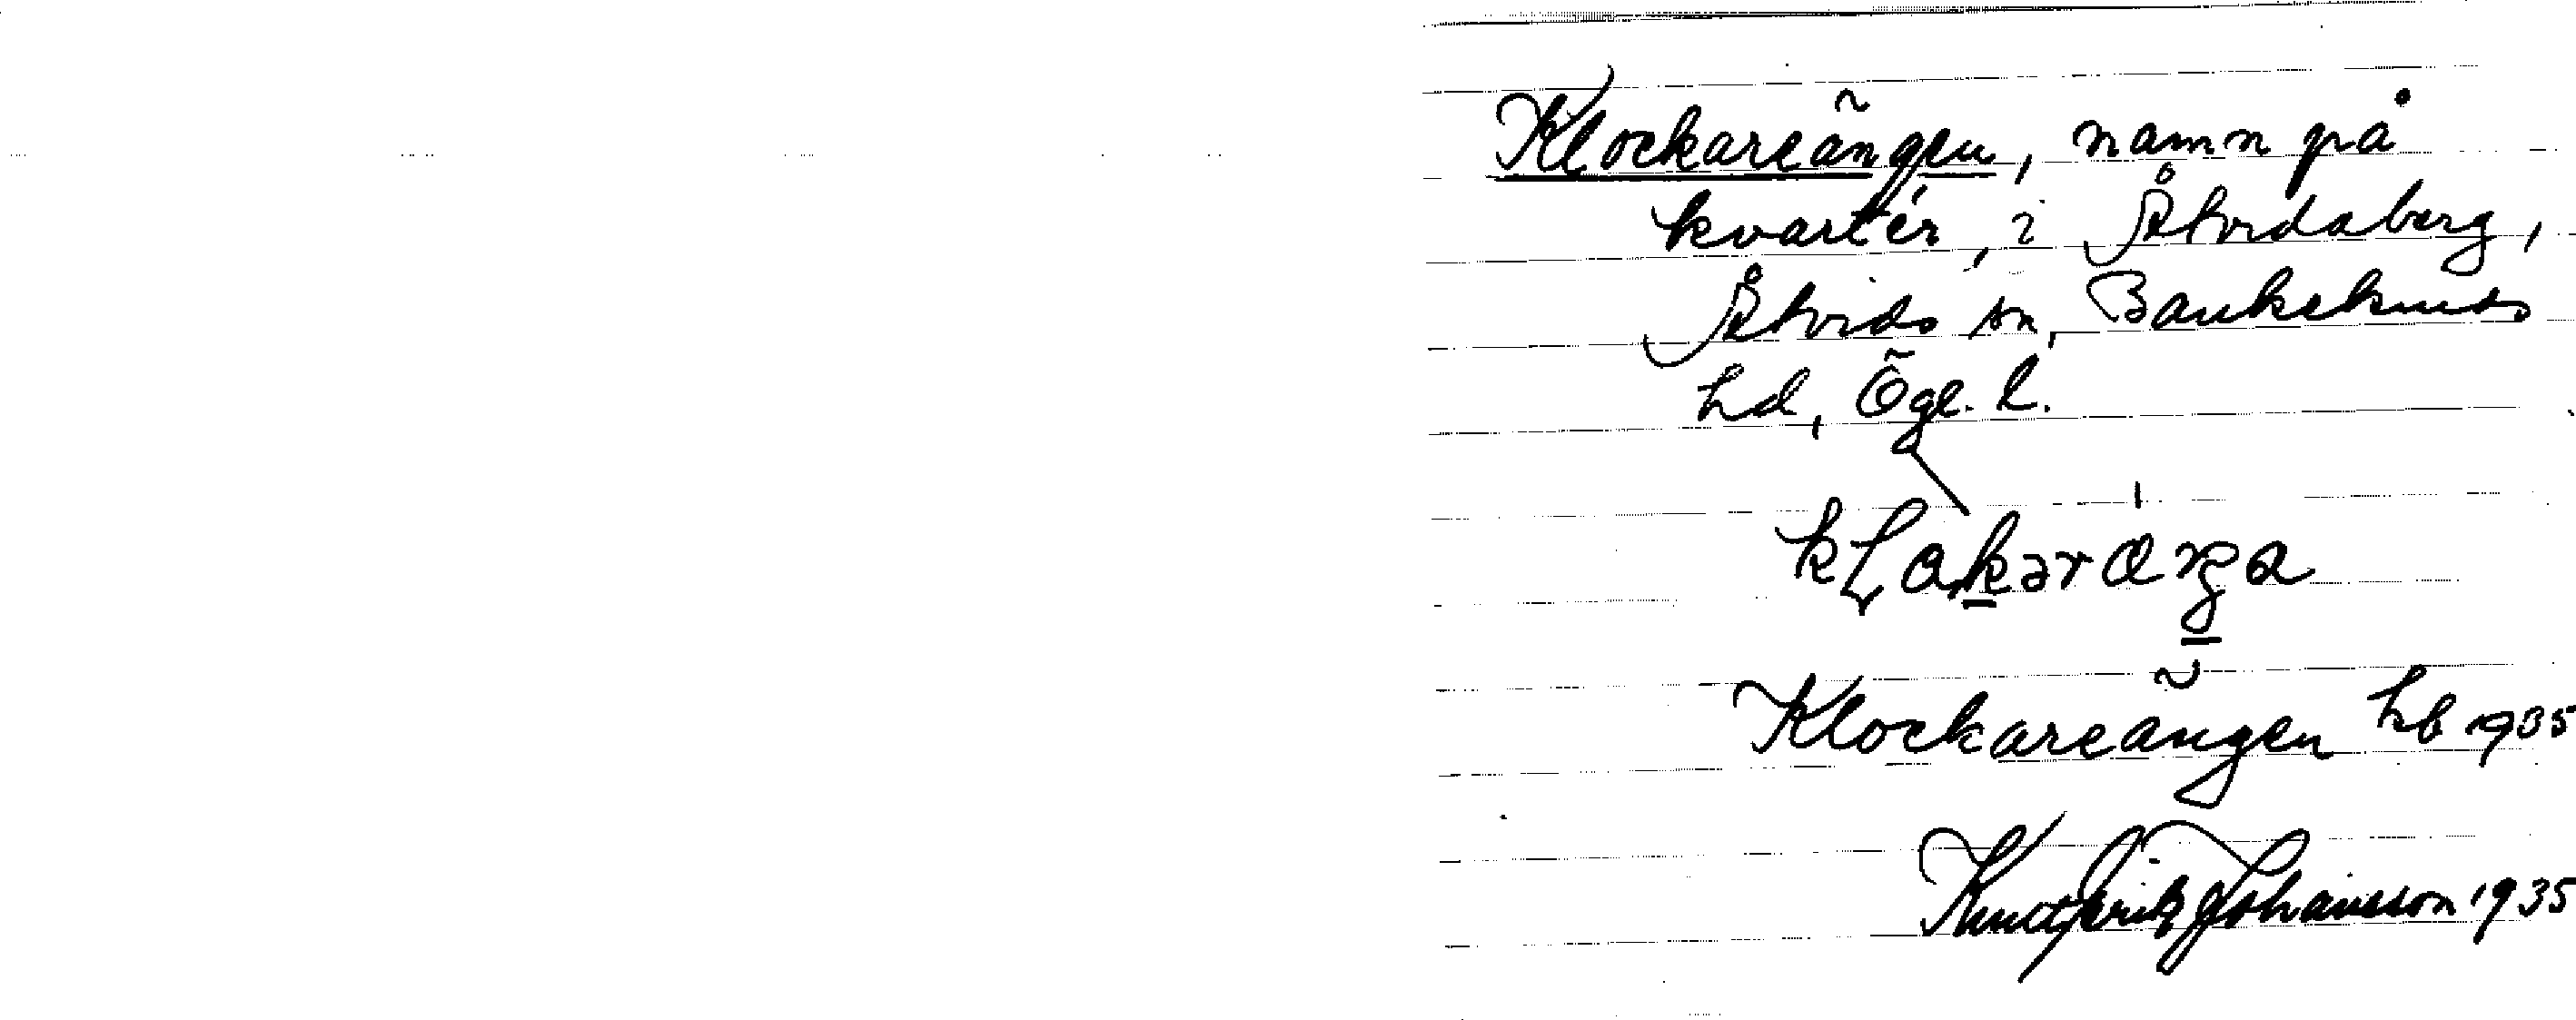 Klockareängen, namn på
kvartér, i Åtvidaberg,
Åtvids sn, Bankekinds
hd, Ögl. l.
Klockareängen hb 1935
Knut Fritz Johansson 1935